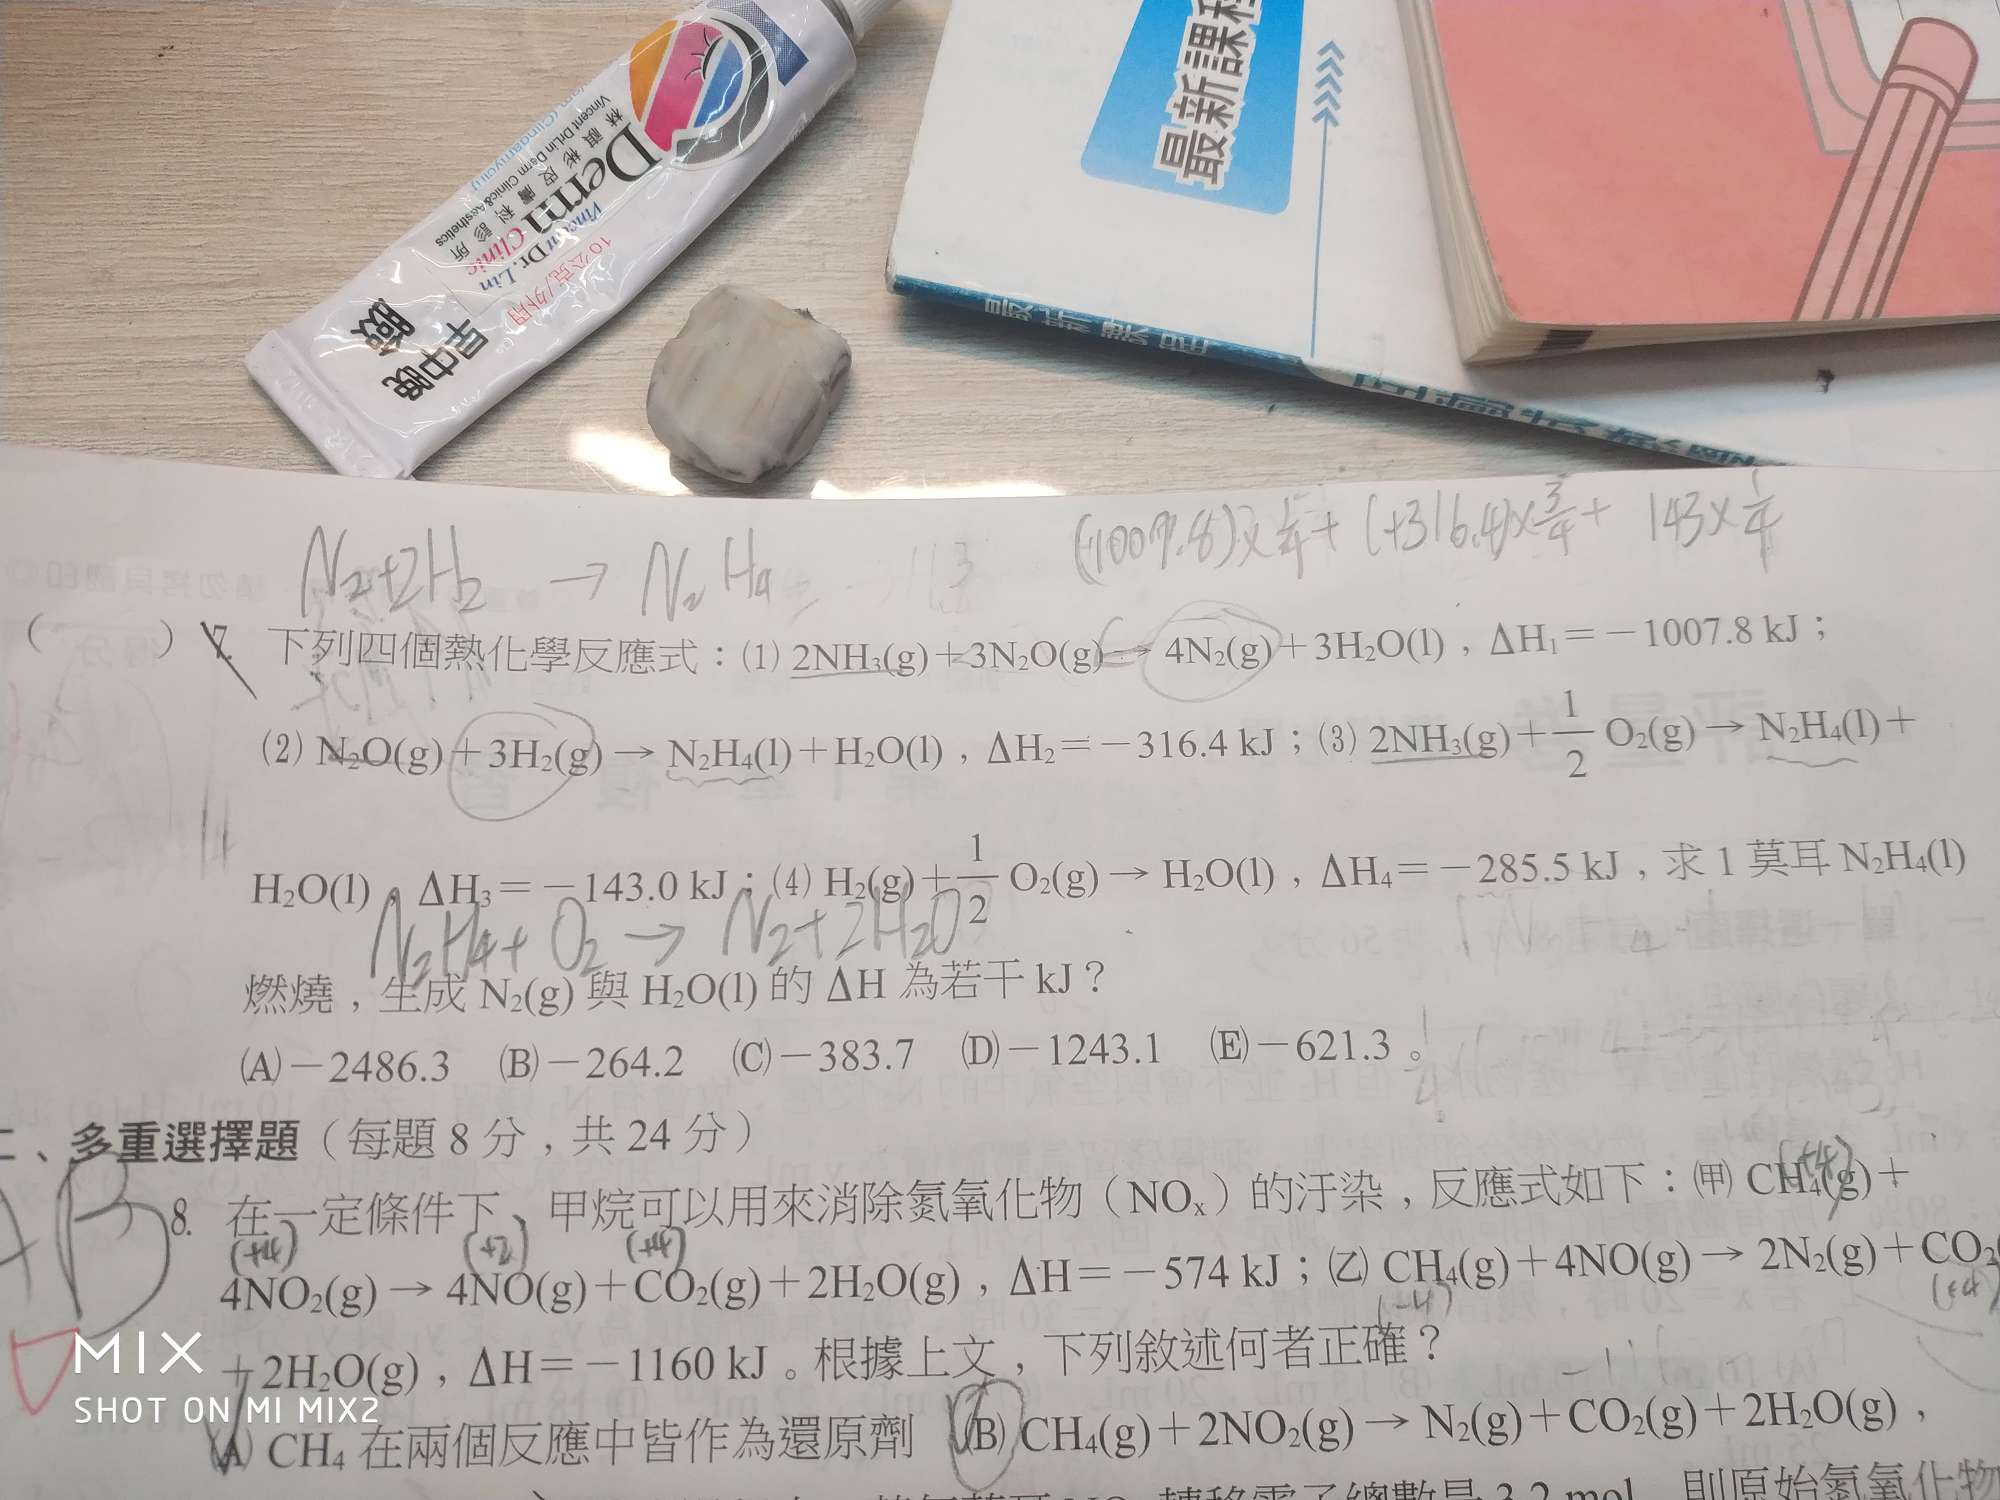 最新課程
Derma
Clinic
Vincent Dr. Lin
林禎彬皮膚科診所
Vincent Dr.Lin Derm Clinic&Aesthetics
10公克/外用
早中晚
臉
N₂+2H₂ → N₂H₄
(-1007.8)×1/4+(+316.4)×3/4+ 143×1/4
( ) 7. 下列四個熱化學反應式:⑴ 2NH₃(g)+3N₂O(g)→4N₂(g)+3H₂O(l),ΔH₁=-1007.8 kJ;
⑵ N₂O(g)+3H₂(g)→N₂H₄(l)+H₂O(l),ΔH₂=-316.4 kJ;⑶ 2NH₃(g)+1/2 O₂(g)→N₂H₄(l)+
H₂O(l),ΔH₃=-143.0 kJ;⑷ H₂(g)+1/2 O₂(g)→H₂O(l),ΔH₄=-285.5 kJ,求 1 莫耳 N₂H₄(l)
N₂H₄+O₂ → N₂+2H₂O
燃燒,生成 N₂(g) 與 H₂O(l) 的 ΔH 為若干 kJ?
(A)-2486.3 (B)-264.2 (C)-383.7 (D)-1243.1 (E)-621.3。
二、多重選擇題(每題 8 分,共 24 分)
AB
8. 在一定條件下,甲烷可以用來消除氮氧化物(NOₓ)的汙染,反應式如下:㈙ CH₄(g)+
(+4) (+2) (+4)
4NO₂(g)→4NO(g)+CO₂(g)+2H₂O(g),ΔH=-574 kJ;㈚ CH₄(g)+4NO(g)→2N₂(g)+CO₂(
(-4) (+4)
+2H₂O(g),ΔH=-1160 kJ。根據上文,下列敘述何者正確?
(A) CH₄ 在兩個反應中皆作為還原劑 (B) CH₄(g)+2NO₂(g)→N₂(g)+CO₂(g)+2H₂O(g),
轉移電子總數是 3.2 mol,則原始氮氧化物
MIX
SHOT ON MI MIX2